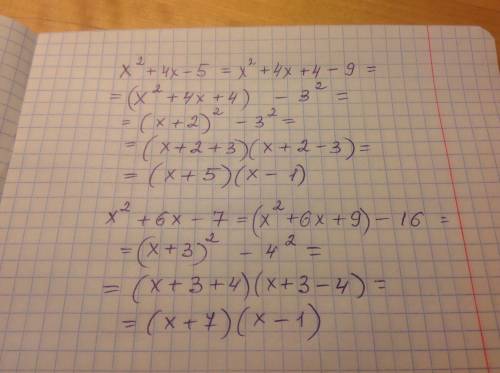 x² + 4x - 5 = x² + 4x + 4 - 9 =
= (x² + 4x + 4) - 3² =
= (x + 2)² - 3² =
= (x + 2 + 3)(x + 2 - 3) =
= (x + 5)(x - 1)
x² + 6x - 7 = (x² + 6x + 9) - 16 =
= (x + 3)² - 4² =
= (x + 3 + 4)(x + 3 - 4) =
= (x + 7)(x - 1)